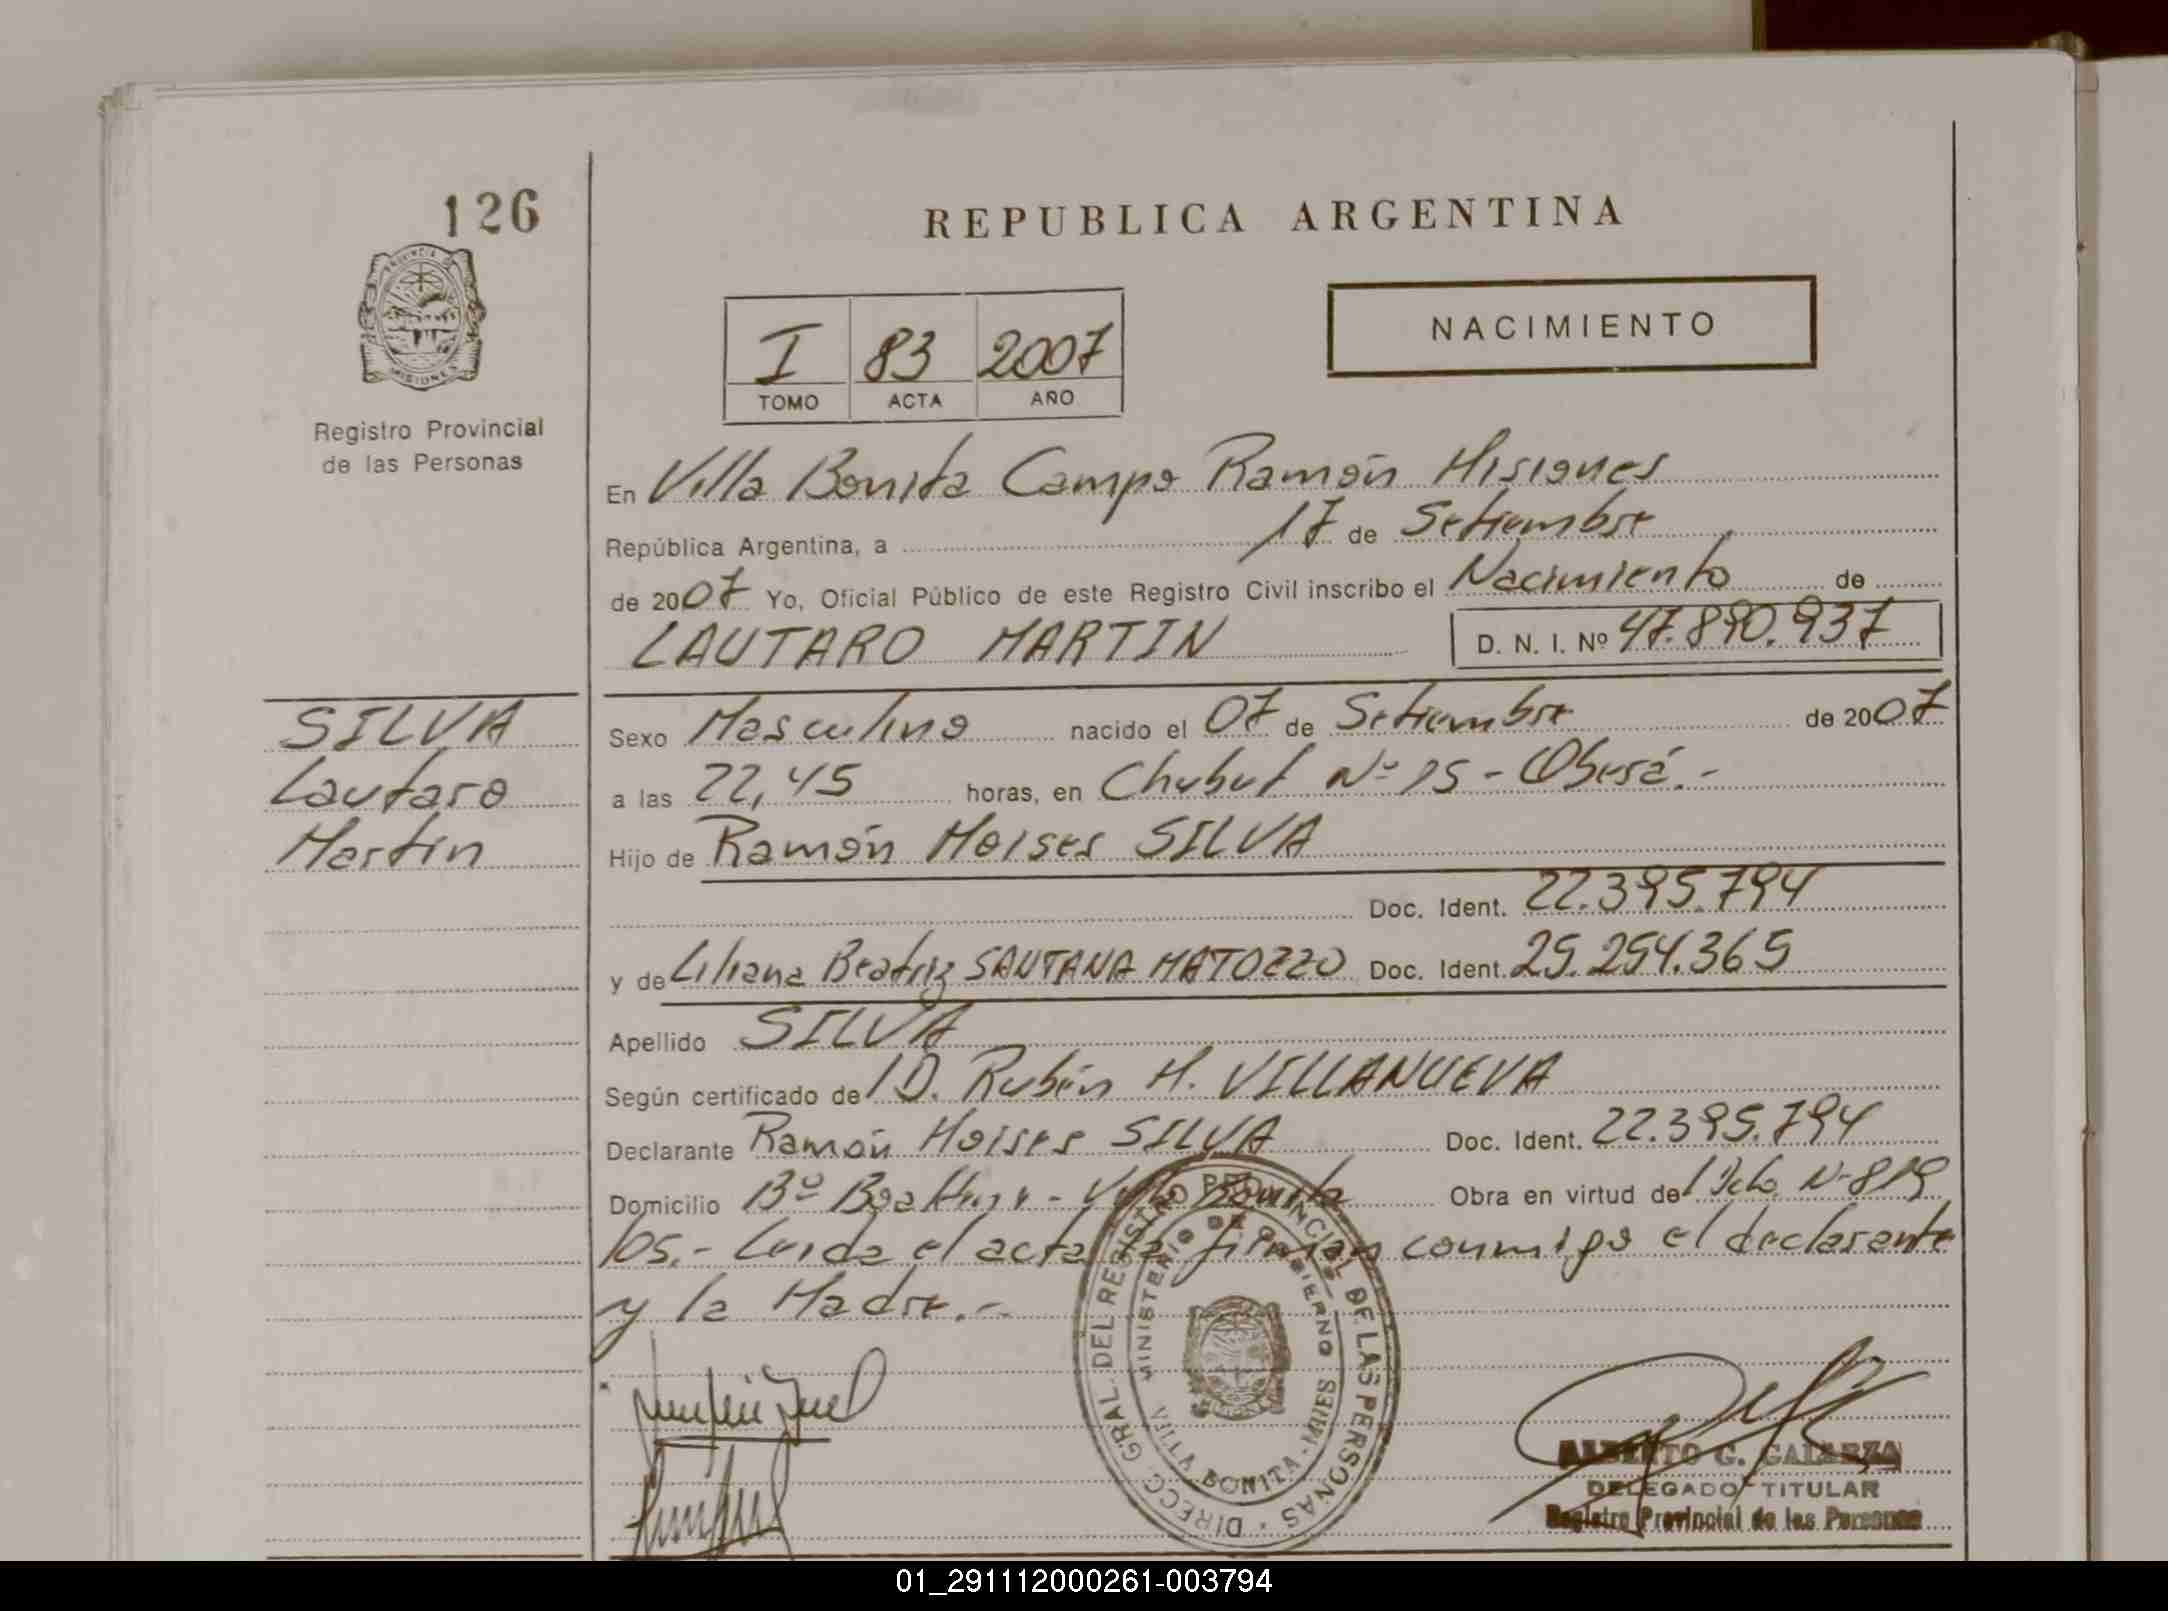 126
REPUBLICA ARGENTINA
PROVINCIA DE
MISIONES
Registro Provincial
de las Personas
I 83 2007
TOMO ACTA AÑO
NACIMIENTO
En Villa Bonita Campo Ramón Misiones
República Argentina, a 17 de Setiembre
de 2007 Yo, Oficial Público de este Registro Civil inscribo el Nacimiento de
LAUTARO MARTIN D. N. I. Nº 47.890.937
SILVA
Lautaro
Martin
Sexo Masculino nacido el 07 de Setiembre de 2007
a las 22,45 horas, en Chubut Nº 15 - Oberá.-
Hijo de Ramón Moises SILVA
Doc. Ident. 22.395.794
y de Liliana Beatriz SANTANA MATOZZO Doc. Ident. 25.254.365
Apellido SILVA
Según certificado de D. Rubén M. VILLANUEVA
Declarante Ramón Moises SILVA Doc. Ident. 22.395.794
Domicilio Bº - Villa Bonita Obra en virtud de Dcto. Nº 819
los.- Leida el acta la firman conmigo el declarante
y la Madre.-
DIRECC. GRAL. DEL REGISTRO PROVINCIAL DE LAS PERSONAS
MINISTERIO DE GOBIERNO
VILLA BONITA - MNES
ALBERTO G. GALARZA
DELEGADO TITULAR
Registro Provincial de las Personas
01_291112000261-003794